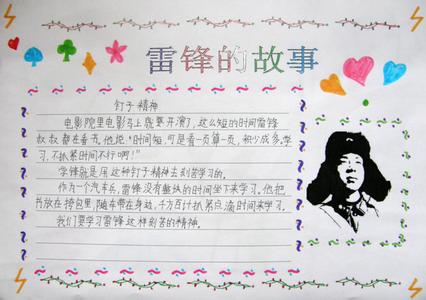 雷锋的故事
钉子精神
电影院里电影马上就要开演了,这么短的时间雷锋
叔叔都在看书,他说:"时间短,可是看一页算一页,积少成多,学
习,不抓紧时间不行啊!"
学锋就是用这种钉子精神去刻苦学习的。
作为一个汽车兵,雷锋没有整块的时间坐下来学习。他把
书放在挎包里,随车带在身边,千方百计抓紧点滴时间来学习。
我们要学习雷锋这样刻苦的精神。